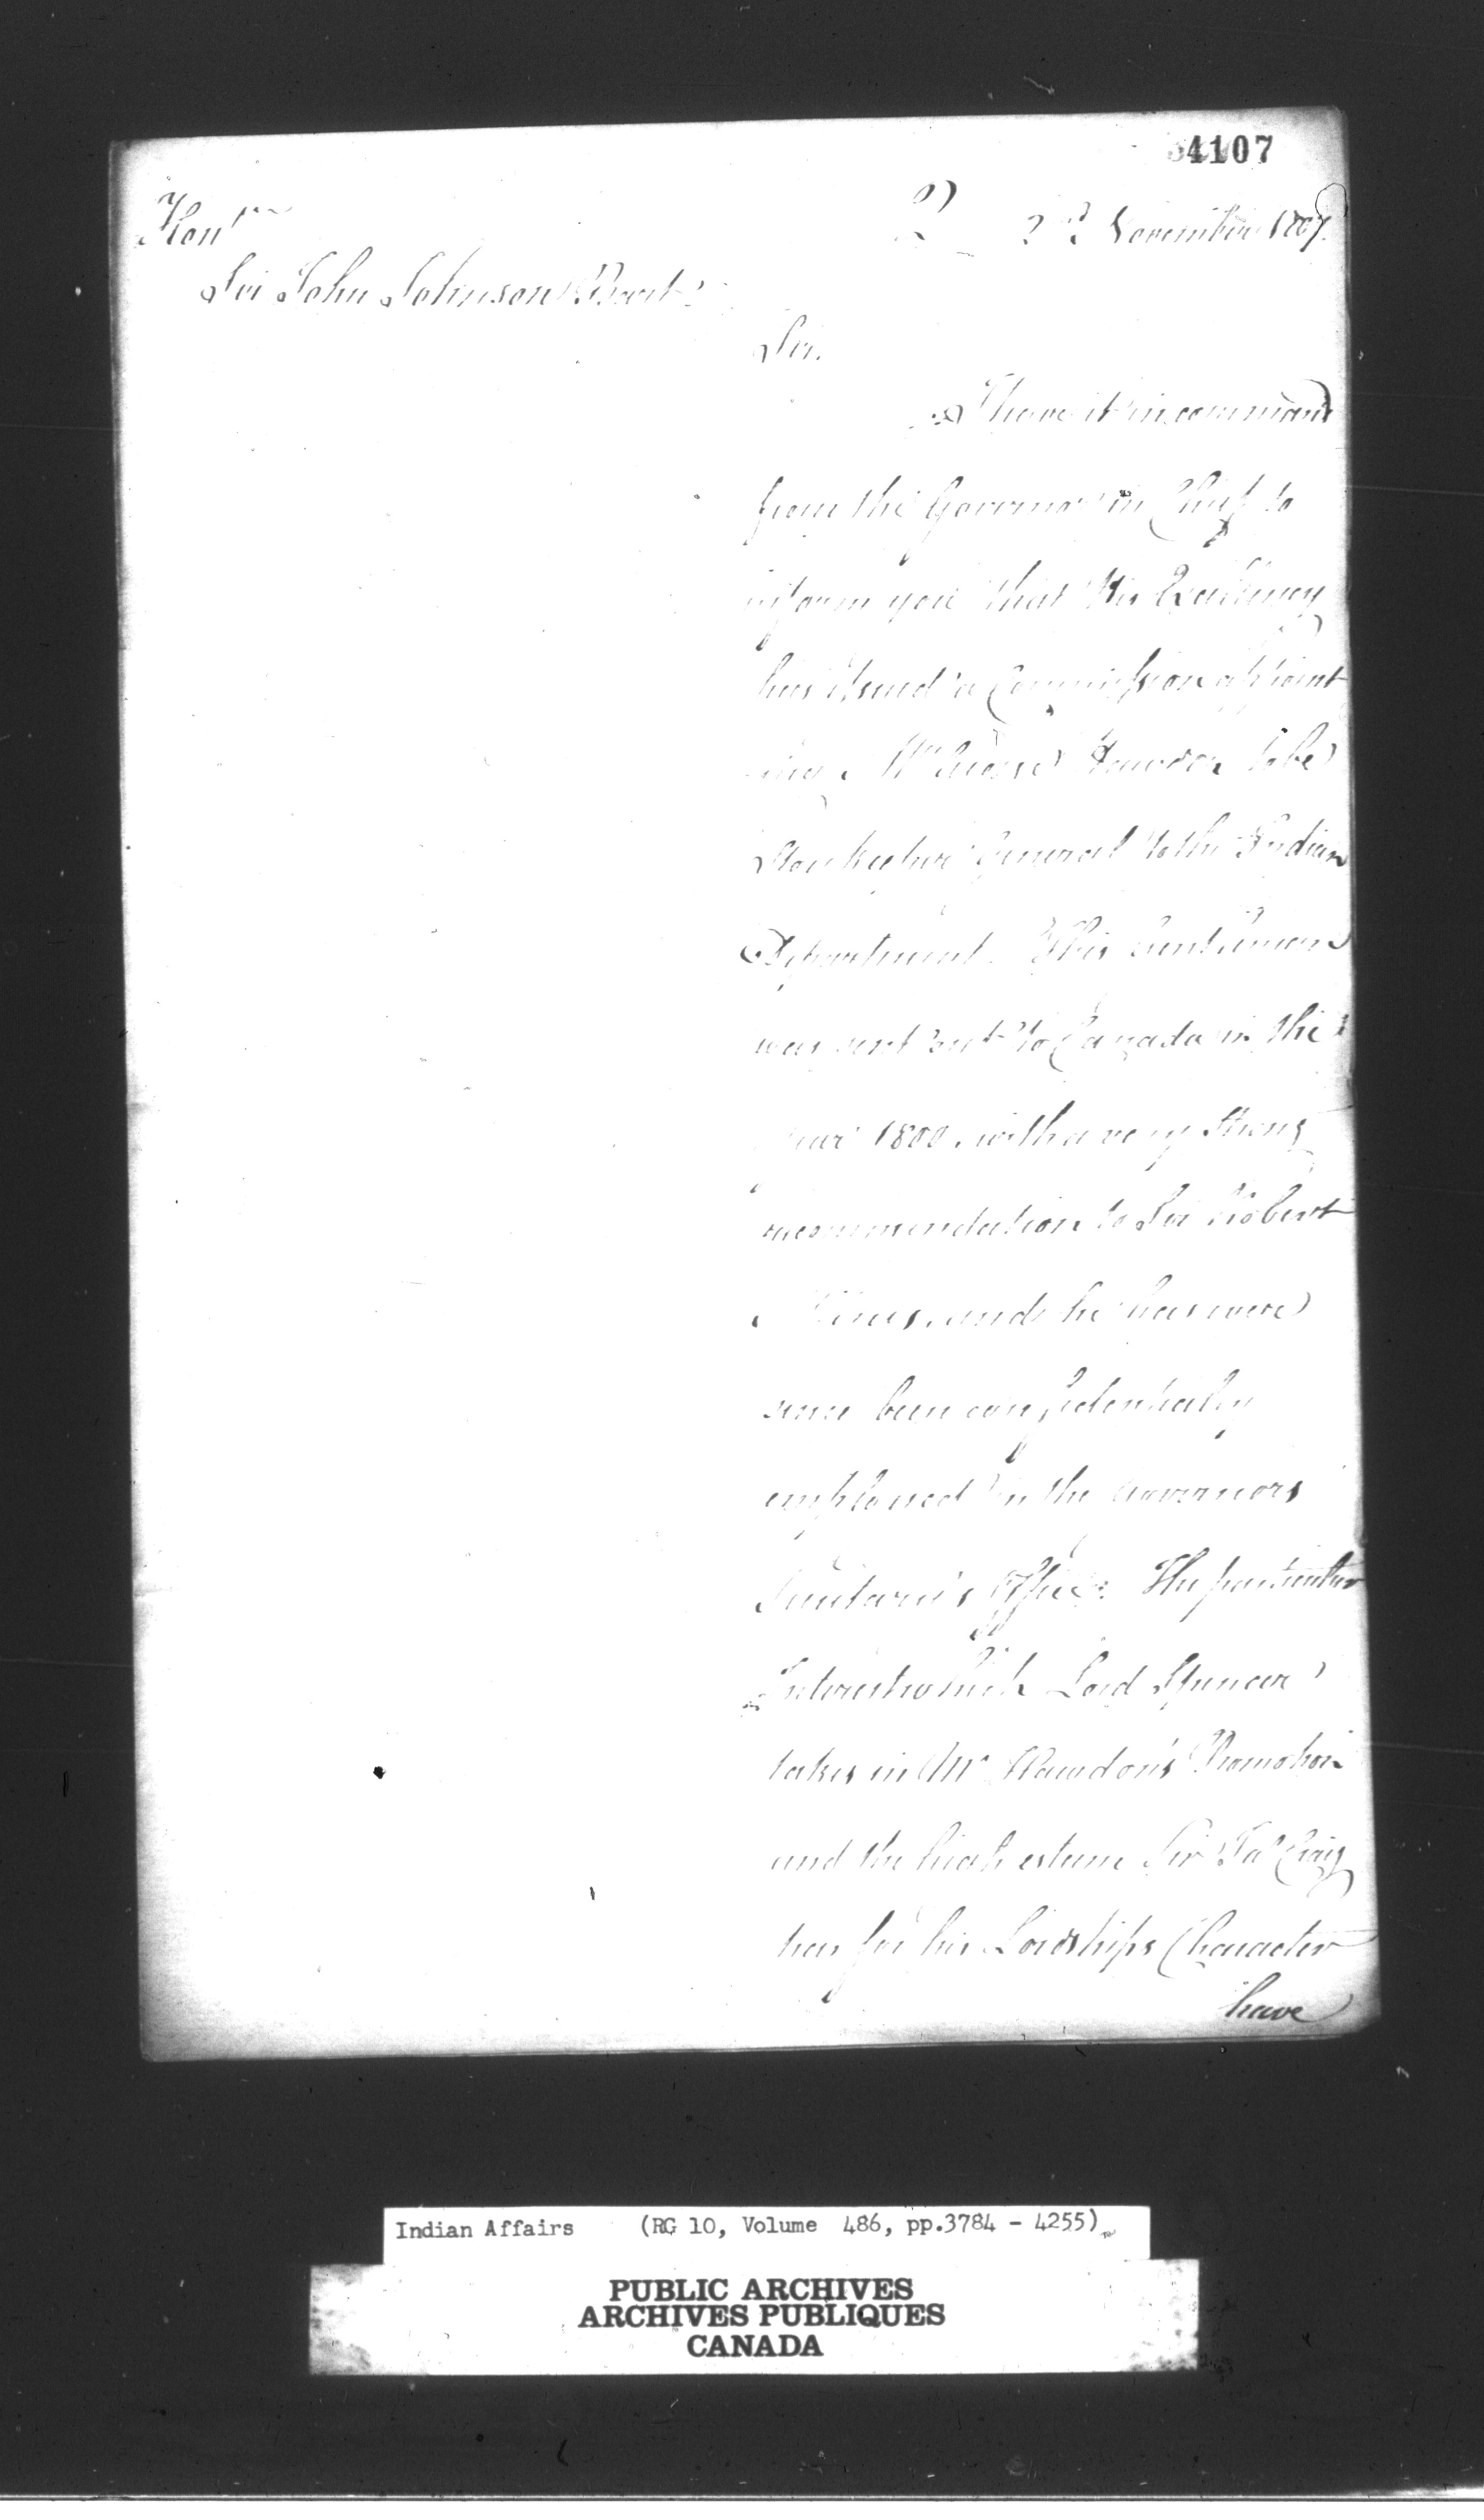 4107
Honble
2 2d November 1807.
Sir John Johnson Bart.
Sir.
I have it in command
from the Governor in Chief to
inform you that His Excellency
has issued a Commission appoint
ing Mr Rawdon to be
Storekeeper General to the Indian
Department. This Gentleman
was sent out to Canada in the
year 1800, with a very Strong
recommendation to Sir Robert
Milnes, and he has ever
since been confidentially
employed in the Governors
Secretary's Office. The particular
Interest which Lord Spencer
takes in Mr Rawdon's Promotion
and the high esteem Sir Jas Craig
has for his Lordships Character
have
Indian Affairs (RG 10, Volume 486, pp.3784 - 4255)
PUBLIC ARCHIVES
ARCHIVES PUBLIQUES
CANADA